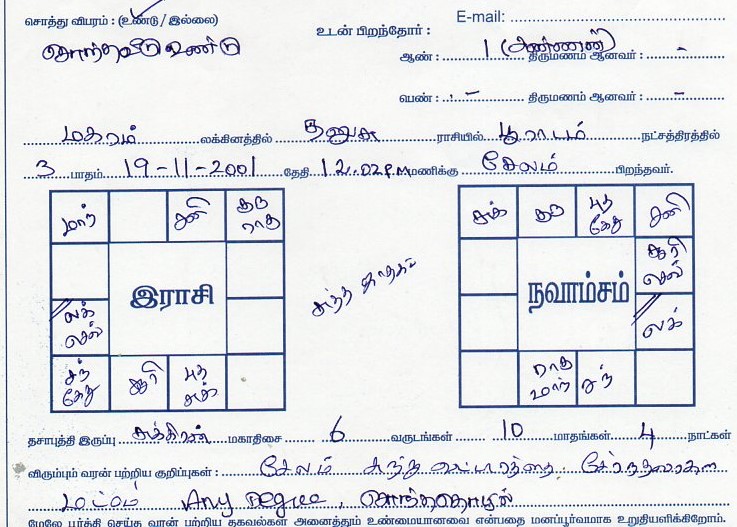 சொத்து விபரம் : (உண்டு / இல்லை)
E-mail:
சொந்த வீடு உண்டு
உடன் பிறந்தோர் :
ஆண் : 1 (அண்ணன்) திருமணம் ஆனவர் : -
பெண் : - திருமணம் ஆனவர் : -
மகரம் லக்கினத்தில் தனுசு ராசியில் பூராடம் நட்சத்திரத்தில்
3 பாதம் 19-11-2001 தேதி 12.02 P.M மணிக்கு சேலம் பிறந்தவர்.
மாந் சனி குரு ராகு
இராசி
லக் செவ்
சந் கேது சூரி புத சுக்
சுத்த ஜாதகம்
சுக் குரு புத கேது சனி
நவாம்சம்
சூரி செவ்
லக்
ராகு மாந் சந்
தசாபுத்தி இருப்பு சுக்கிரன் மகாதிசை 6 வருடங்கள் 10 மாதங்கள் 4 நாட்கள்
விரும்பும் வரன் பற்றிய குறிப்புகள் : சேலம் சுற்று வட்டாரத்தை சேர்ந்தவர்கள்
மட்டும் Any Degree, சொந்ததொழில்
மேலே பூர்த்தி செய்த வரன் பற்றிய தகவல்கள் அனைத்தும் உண்மையானவை என்பதை மனப்பூர்வமாக உறுதியளிக்கிறோம்.